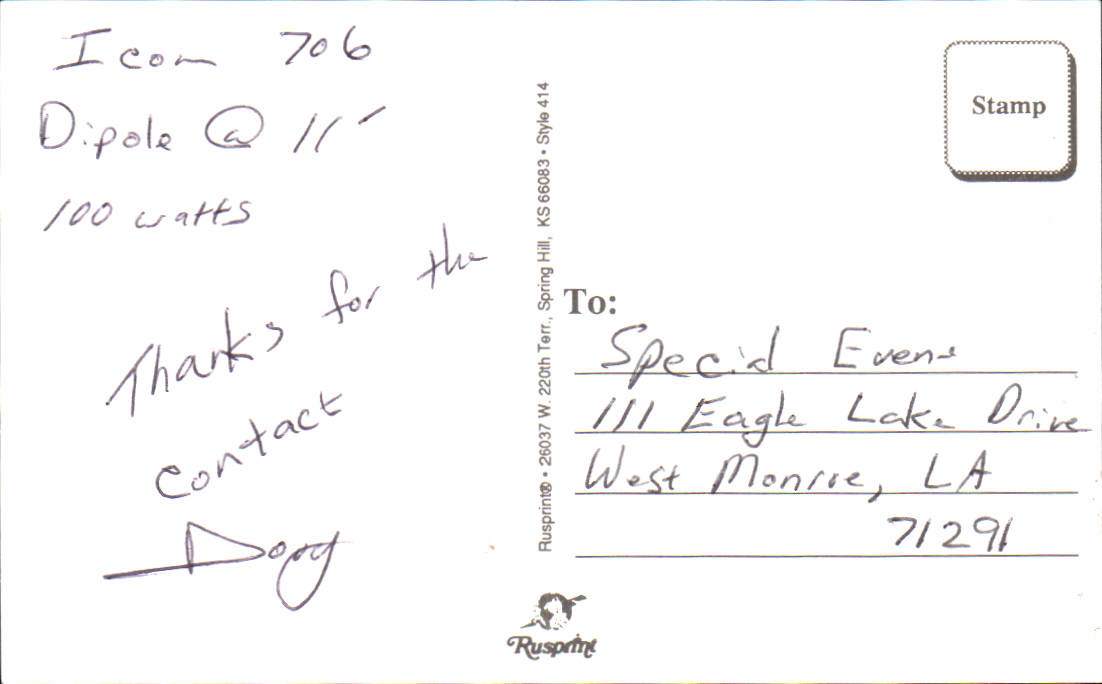 Icom 706
Dipole @ 11'
100 watts
Thanks for the
contact
Doug
Rusprint® • 26037 W. 220th Terr., Spring Hill, KS 66083 • Style 414
Stamp
To:
Special Event
111 Eagle Lake Drive
West Monroe, LA
71291
Rusprint